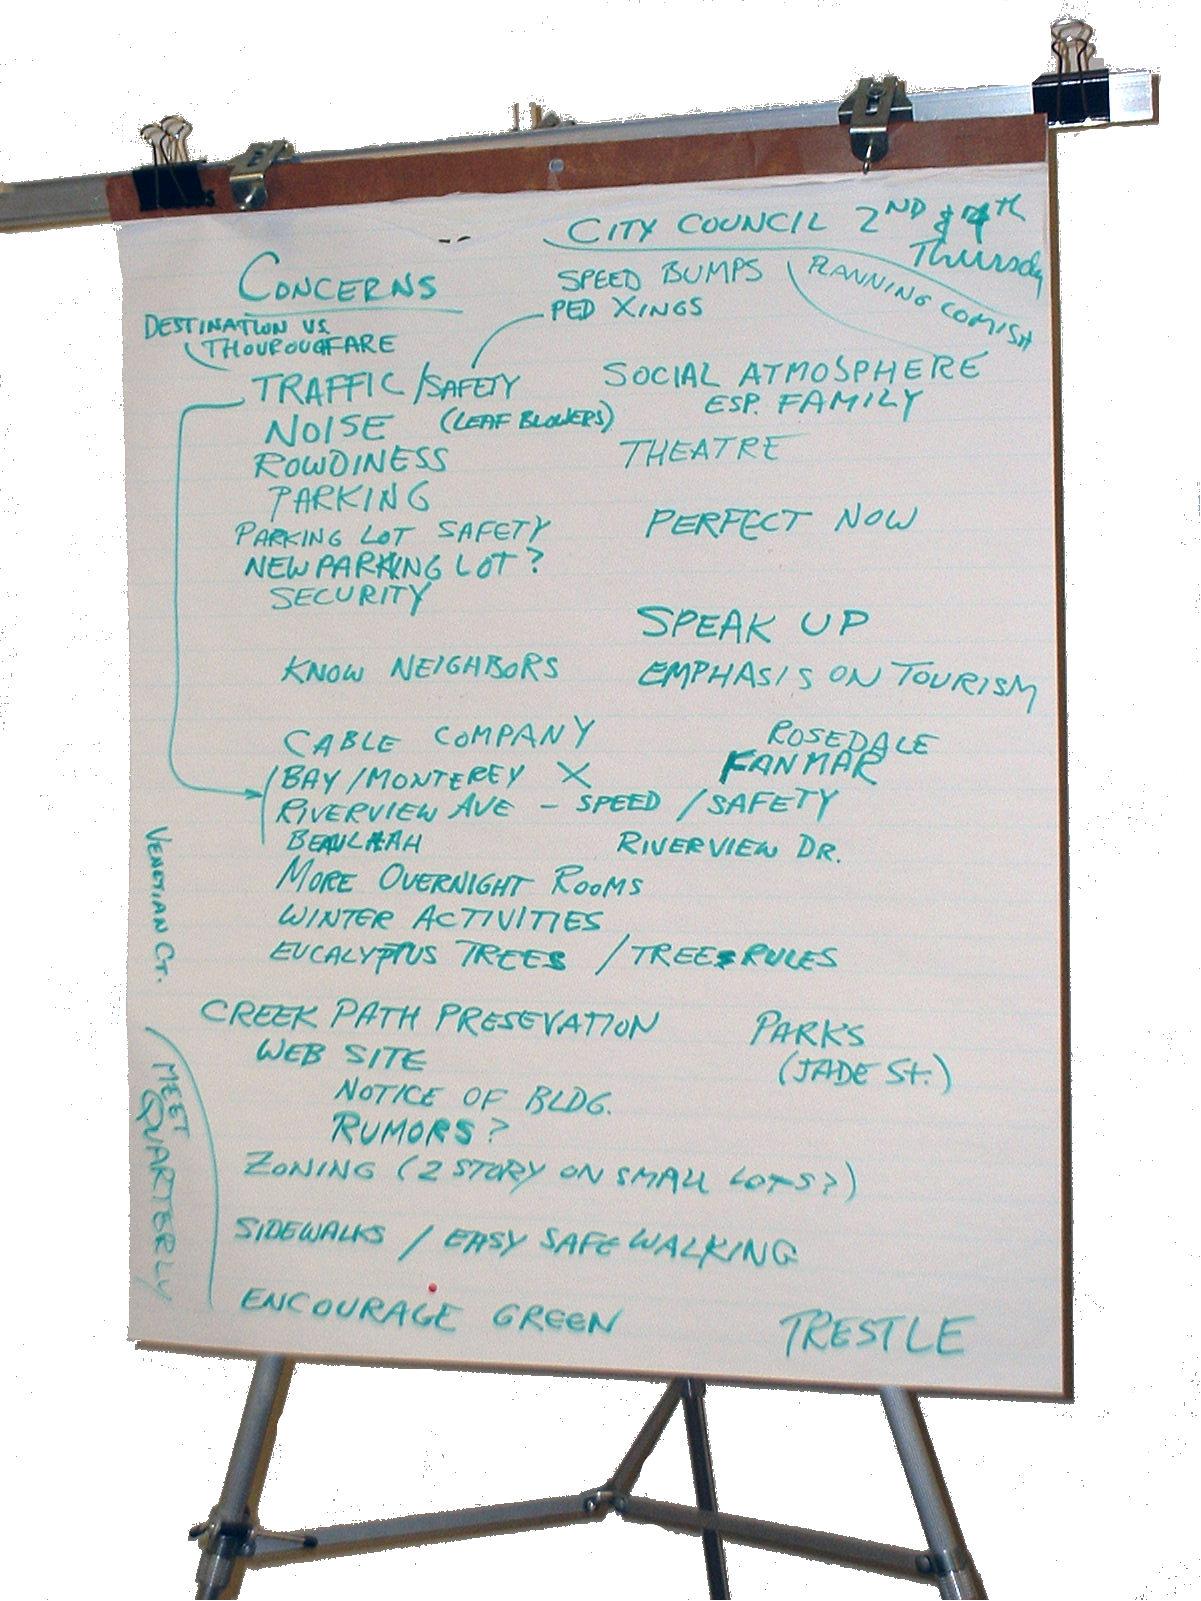 CITY COUNCIL 2ND & 4TH
Thursday
PLANNING COMISH
CONCERNS
SPEED BUMPS
PED XINGS
DESTINATION VS.
THOUROUGFARE
TRAFFIC / SAFETY
SOCIAL ATMOSPHERE
ESP. FAMILY
NOISE (LEAF BLOWERS)
THEATRE
ROWDINESS
PARKING
PARKING LOT SAFETY
PERFECT NOW
NEW PARKING LOT ?
SECURITY
SPEAK UP
KNOW NEIGHBORS
EMPHASIS ON TOURISM
CABLE COMPANY
ROSEDALE
FANMAR
BAY / MONTEREY X
RIVERVIEW AVE - SPEED / SAFETY
BEAULAH
RIVERVIEW DR.
MORE OVERNIGHT ROOMS
WINTER ACTIVITIES
EUCALYPTUS TREES / TREE RULES
VENETIAN CT.
CREEK PATH PRESEVATION
PARKS
(JADE St.)
WEB SITE
NOTICE OF BLDG.
RUMORS ?
ZONING (2 STORY ON SMALL LOTS?)
SIDEWALKS / EASY SAFE WALKING
ENCOURAGE GREEN
TRESTLE
MEET
QUARTERLY